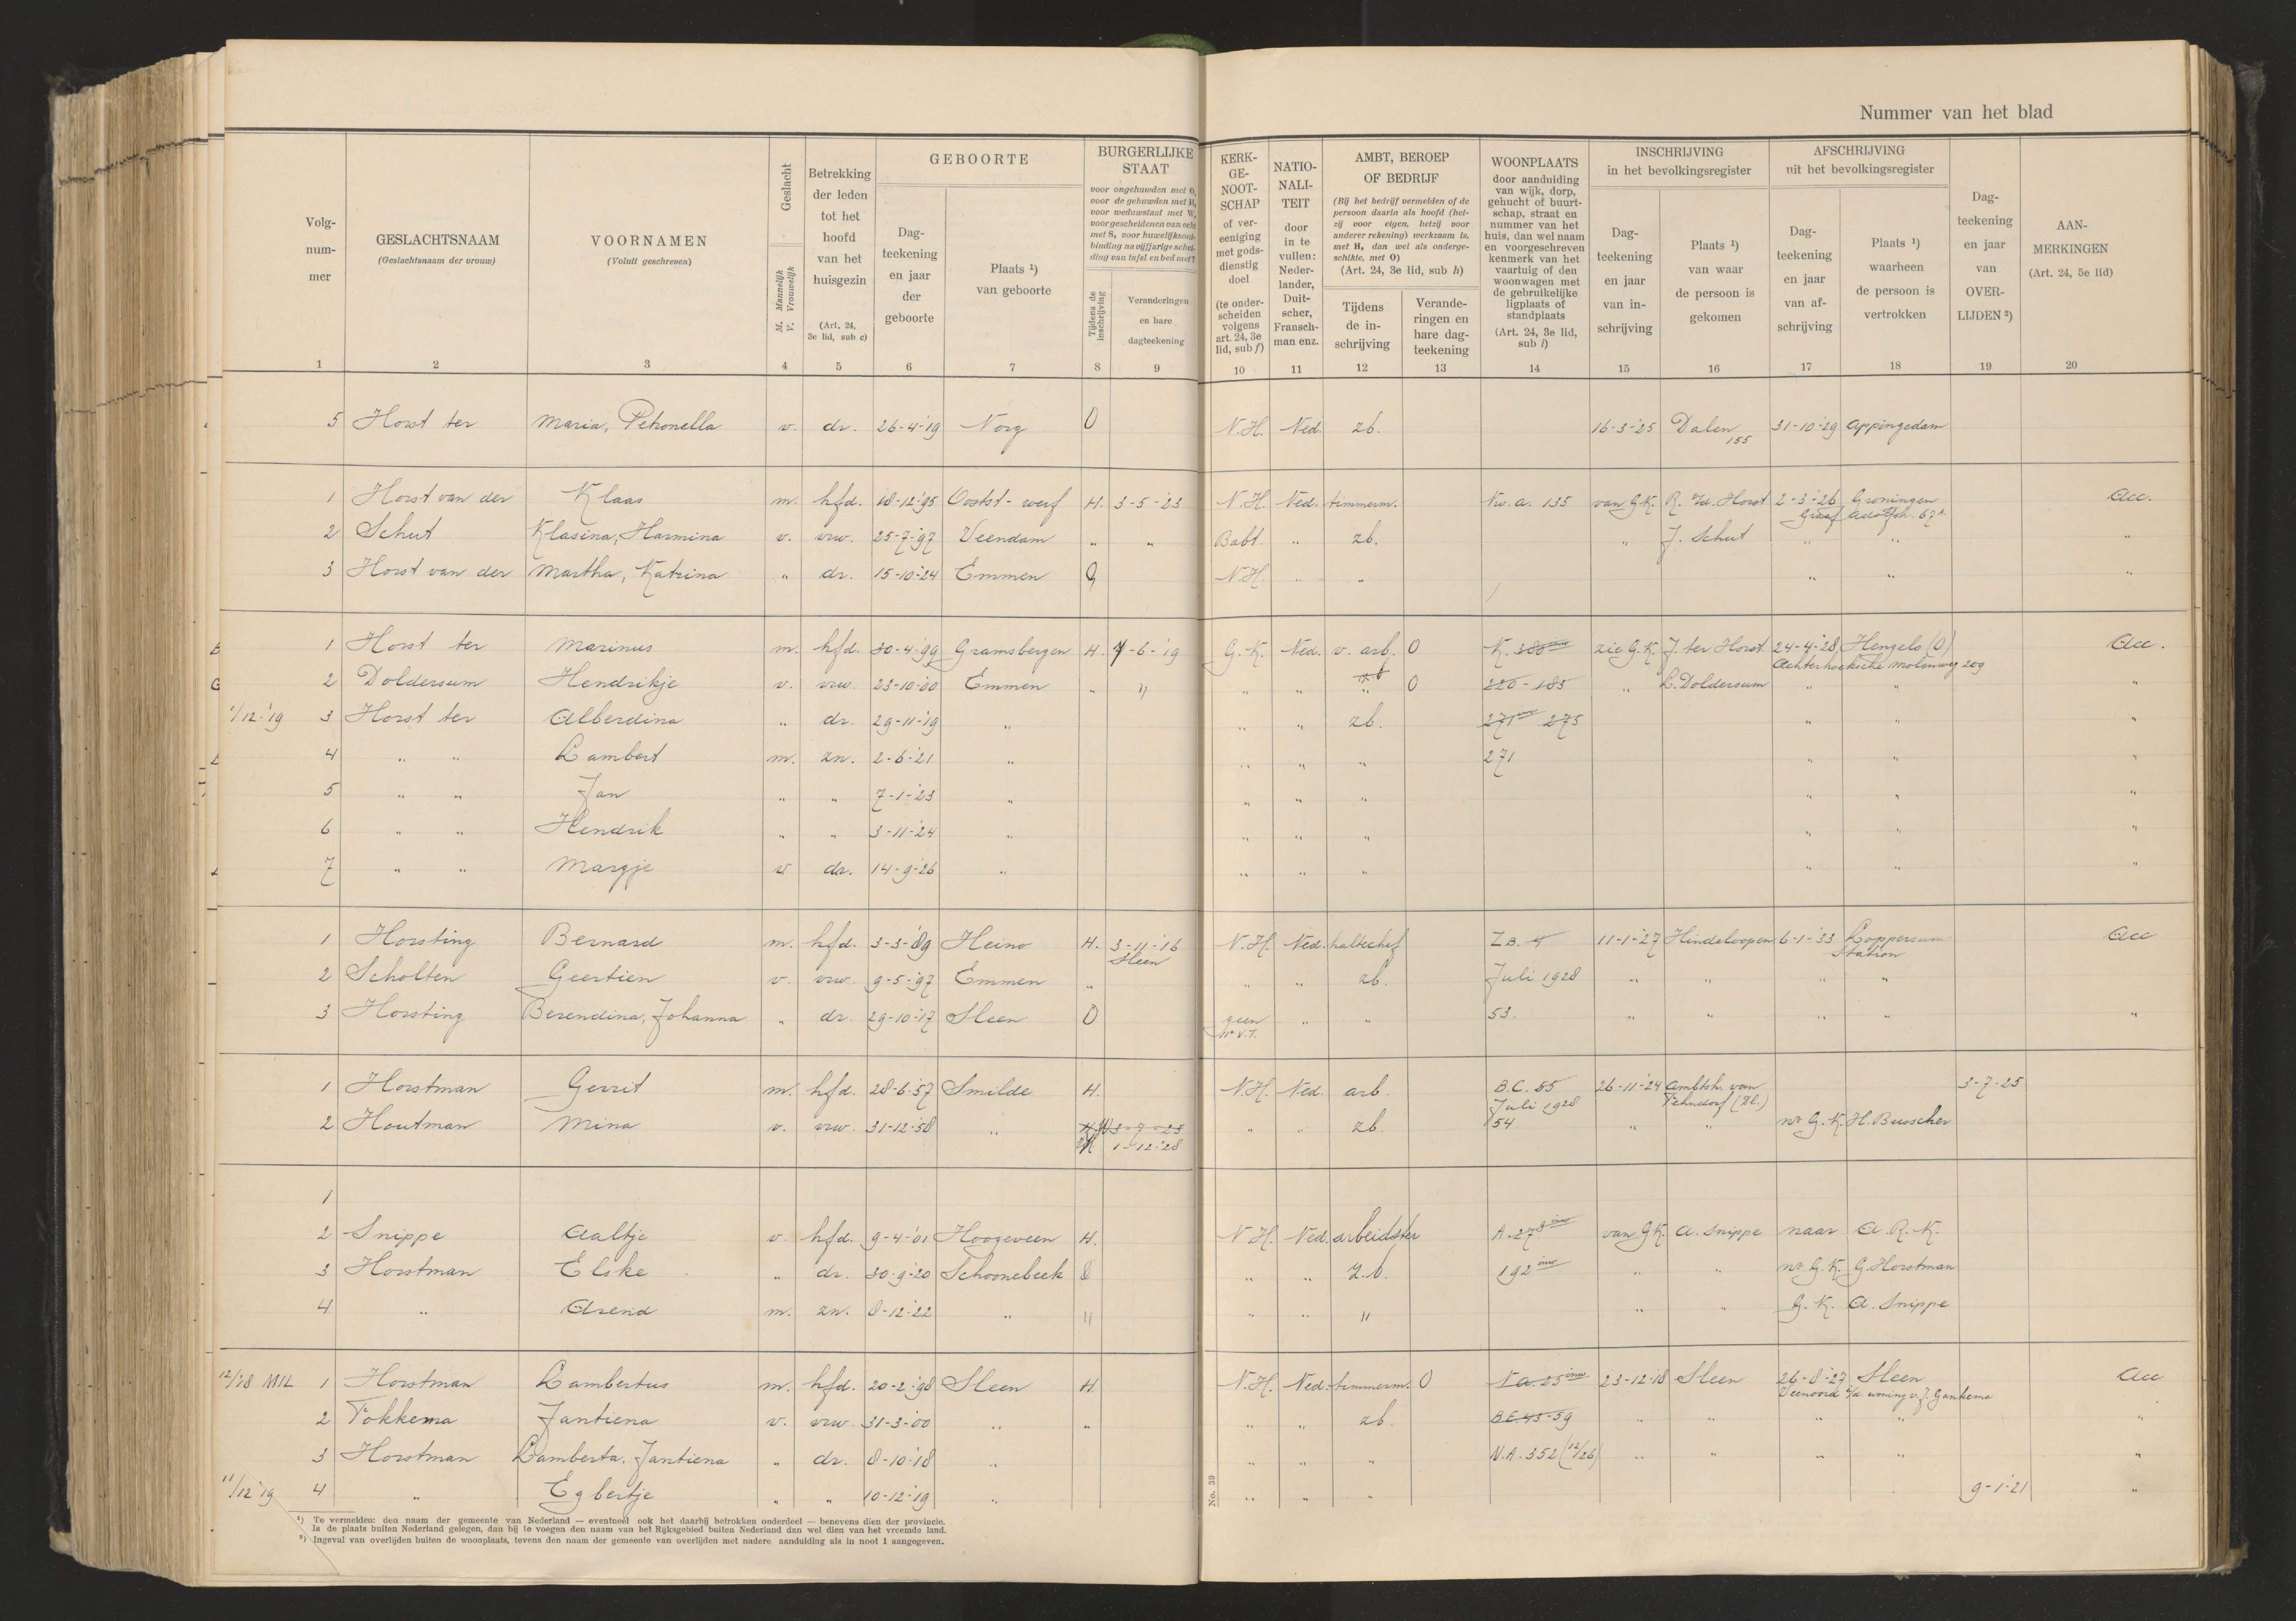 Nummer van het blad
Volg-
num-
mer
GESLACHTSNAAM
(Geslachtsnaam der vrouw)
VOORNAMEN
(Voluit geschreven)
Geslacht
M. Mannelijk
V. Vrouwelijk
Betrekking
der leden
tot het
hoofd
van het
huisgezin
(Art. 24,
3e lid, sub c)
GEBOORTE
Dag-
teekening
en jaar
der
geboorte
Plaats ¹)
van geboorte
BURGERLIJKE
STAAT
voor ongehuwden met O,
voor de gehuwden met H,
voor weduwstaat met W,
voor gescheidenen van echt
met S, voor huwelijksont-
binding na vijfjarige schei-
ding van tafel en bed met T
Tijdens de
inschrijving
Veranderingen
en hare
dagteekening
KERK-
GE-
NOOT-
SCHAP
of ver-
eeniging
met gods-
dienstig
doel
(te onder-
scheiden
volgens
art. 24, 3e
lid, sub f)
NATIO-
NALI-
TEIT
door
in te
vullen:
Neder-
lander,
Duit-
scher,
Fransch-
man enz.
AMBT, BEROEP
OF BEDRIJF
(Bij het bedrijf vermelden of de
persoon daarin als hoofd (het-
zij voor eigen, hetzij voor
anderer rekening) werkzaam is,
met H, dan wel als onderge-
schikte, met O)
(Art. 24, 3e lid, sub h)
Tijdens
de in-
schrijving
Verande-
ringen en
hare dag-
teekening
WOONPLAATS
door aanduiding
van wijk, dorp,
gehucht of buurt-
schap, straat en
nummer van het
huis, dan wel naam
en voorgeschreven
kenmerk van het
vaartuig of den
woonwagen met
de gebruikelijke
ligplaats of
standplaats
(Art. 24, 3e lid,
sub i)
INSCHRIJVING
in het bevolkingsregister
Dag-
teekening
en jaar
van in-
schrijving
Plaats ¹)
van waar
de persoon is
gekomen
AFSCHRIJVING
uit het bevolkingsregister
Dag-
teekening
en jaar
van af-
schrijving
Plaats ¹)
waarheen
de persoon is
vertrokken
Dag-
teekening
en jaar
van
OVER-
LIJDEN ²)
AAN-
MERKINGEN
(Art. 24, 5e lid)
1 2 3 4 5 6 7 8 9 10 11 12 13 14 15 16 17 18 19 20
5 Horst ter Maria, Petronella v. dr. 26-4-'19 Norg O N.H. Ned. zb. 16-3-'25 Dalen 31-10-'29 Appingedam
155
1 Horst van der Klaas m. hfd. 18-12-'95 Oostst-werf H. 3-5-'23 N.H. Ned. timmerm. Nw. a. 135 van G.K. R. v.d. Horst 2-3-'26 Groningen Acc.
Graaf Adolfstr. 67a.
2 Schut Klasina, Harmina v. vrw. 25-7-'97 Veendam " " Babt. " zb. " J. Schut " " "
3 Horst van der Martha, Katrina " dr. 15-10-'24 Emmen O N.H. " " " " "
1 Horst ter Marinus m. hfd. 30-4-'99 Gramsbergen H. 7-6-'19 G.-K. Ned. v. arb. O K. 380 zie G.K. J. ter Horst 24-4-'28 Hengelo (O) Acc.
Achterhoeksche molenweg 209
2 Doldersum Hendrikje v. vrw. 23-10-'00 Emmen " " " " " O 220-185 " L. Doldersum " " "
1/12-'19 3 Horst ter Alberdina " dr. 29-11-'19 " " " zb. 271 275 " " "
4 " " Lambert m. zn. 2-6-'21 " " " " 271 " " "
5 " " Jan " " 7-1-'23 " " " " " " "
6 " " Hendrik " " 3-11-'24 " " " " " " "
7 " " Margje v dr. 14-9-'26 " " " " " " "
1 Horsting Bernard m. hfd. 3-3-'89 Heino H. 3-11-'16 N.H. Ned. haltechef Z.B. 4 11-1-'27 Hindeloopen 6-1-'33 Loppersum Acc
Sleen Station
2 Scholten Geertien v. vrw. 9-5-'97 Emmen " " " zb. Juli 1928 " " " "
3 Horsting Berendina, Johanna " dr. 29-10-'17 Sleen O geen " " 53. " " " " "
1 Horstman Gerrit m. hfd. 28-6-'57 Smilde H. N.H. Ned. arb. B.C. 85 26-11-'24 Ambtsh. van 3-7-25
Juli 1928
2 Houtman Mina v. vrw. 31-12-'58 " 3-7-25 " " zb. 54 " " nr G.K. H. Busscher
1-12-'28
1
2 Snippe Aaltje v. hfd. 9-4-'01 Hoogeveen H. N.H. Ned. arbeidster A. 278 van G.K. A. Snippe naar A.R.K.
3 Horstman Elske " dr. 30-9-'20 Schoonebeek " " Z.b. 192 " " nr G.K. G. Horstman
4 " Arend m. zn. 8-12-'22 " " " " " " " G.K. A. Snippe
12/'18 MIL 1 Horstman Lambertus m. hfd. 20-2-'98 Sleen H. N.H. Ned. timmerm. O N.a. 25 23-12-'18 Sleen 26-8-'27 Sleen Acc
Veenoord i/d woning v. J. Gankema
2 Fokkema Jantiena v. vrw. 31-3-'00 " " " " zb. B.E. 45-59 " " " " "
3 Horstman Lamberta, Jantiena " dr. 8-10-'18 " " " " N.A. 352 (12/26) " " " " "
11/12'19 4 " Egbertje " " 10-12-'19 " " " " 9-1-'21 "
No. 39
¹) Te vermelden: den naam der gemeente van Nederland — eventueel ook het daarbij betrokken onderdeel — benevens dien der provincie.
Is de plaats buiten Nederland gelegen, dan bij te voegen den naam van het Rijksgebied buiten Nederland dan wel dien van het vreemde land.
²) Ingeval van overlijden buiten de woonplaats, tevens den naam der gemeente van overlijden met nadere aanduiding als in noot 1 aangegeven.